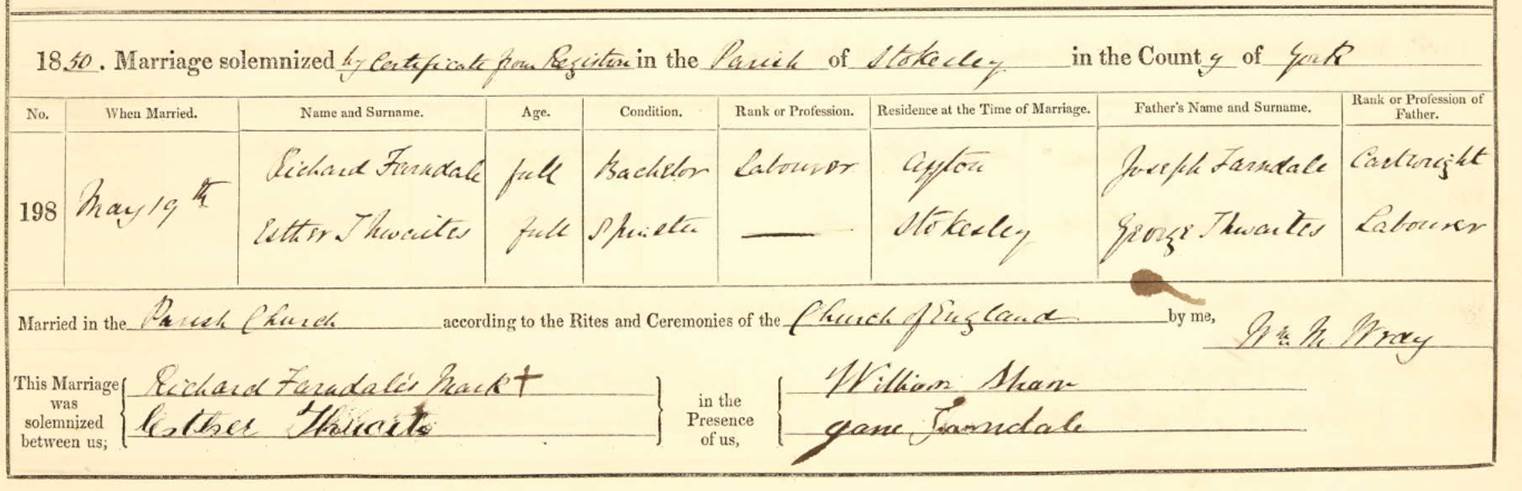 1850. Marriage solemnized by Certificate from Registrar in the Parish of Stokesley in the County of York
No. When Married. Name and Surname. Age. Condition. Rank or Profession. Residence at the Time of Marriage. Father's Name and Surname. Rank or Profession of Father.
Richard Farndale full Bachelor Labourer Ayton Joseph Farndale Cartwright
198 May 19th
Esther Thwaites full Spinster — Stokesley George Thwaites Labourer
Married in the Parish Church according to the Rites and Ceremonies of the Church of England by me, Wm. M. Wray
This Marriage was solemnized between us; Richard Farndale's Mark + in the Presence of us, William Shaw
Esther Thwaits Jane Farndale